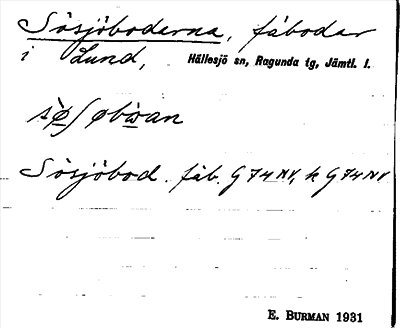 Sösjöbodarna, fäbodar
i Lund, Hällesjö sn, Ragunda tg, Jämtl. l.
Sösjöbod. fäb. G74NV, k G74NV
E. BURMAN 1931